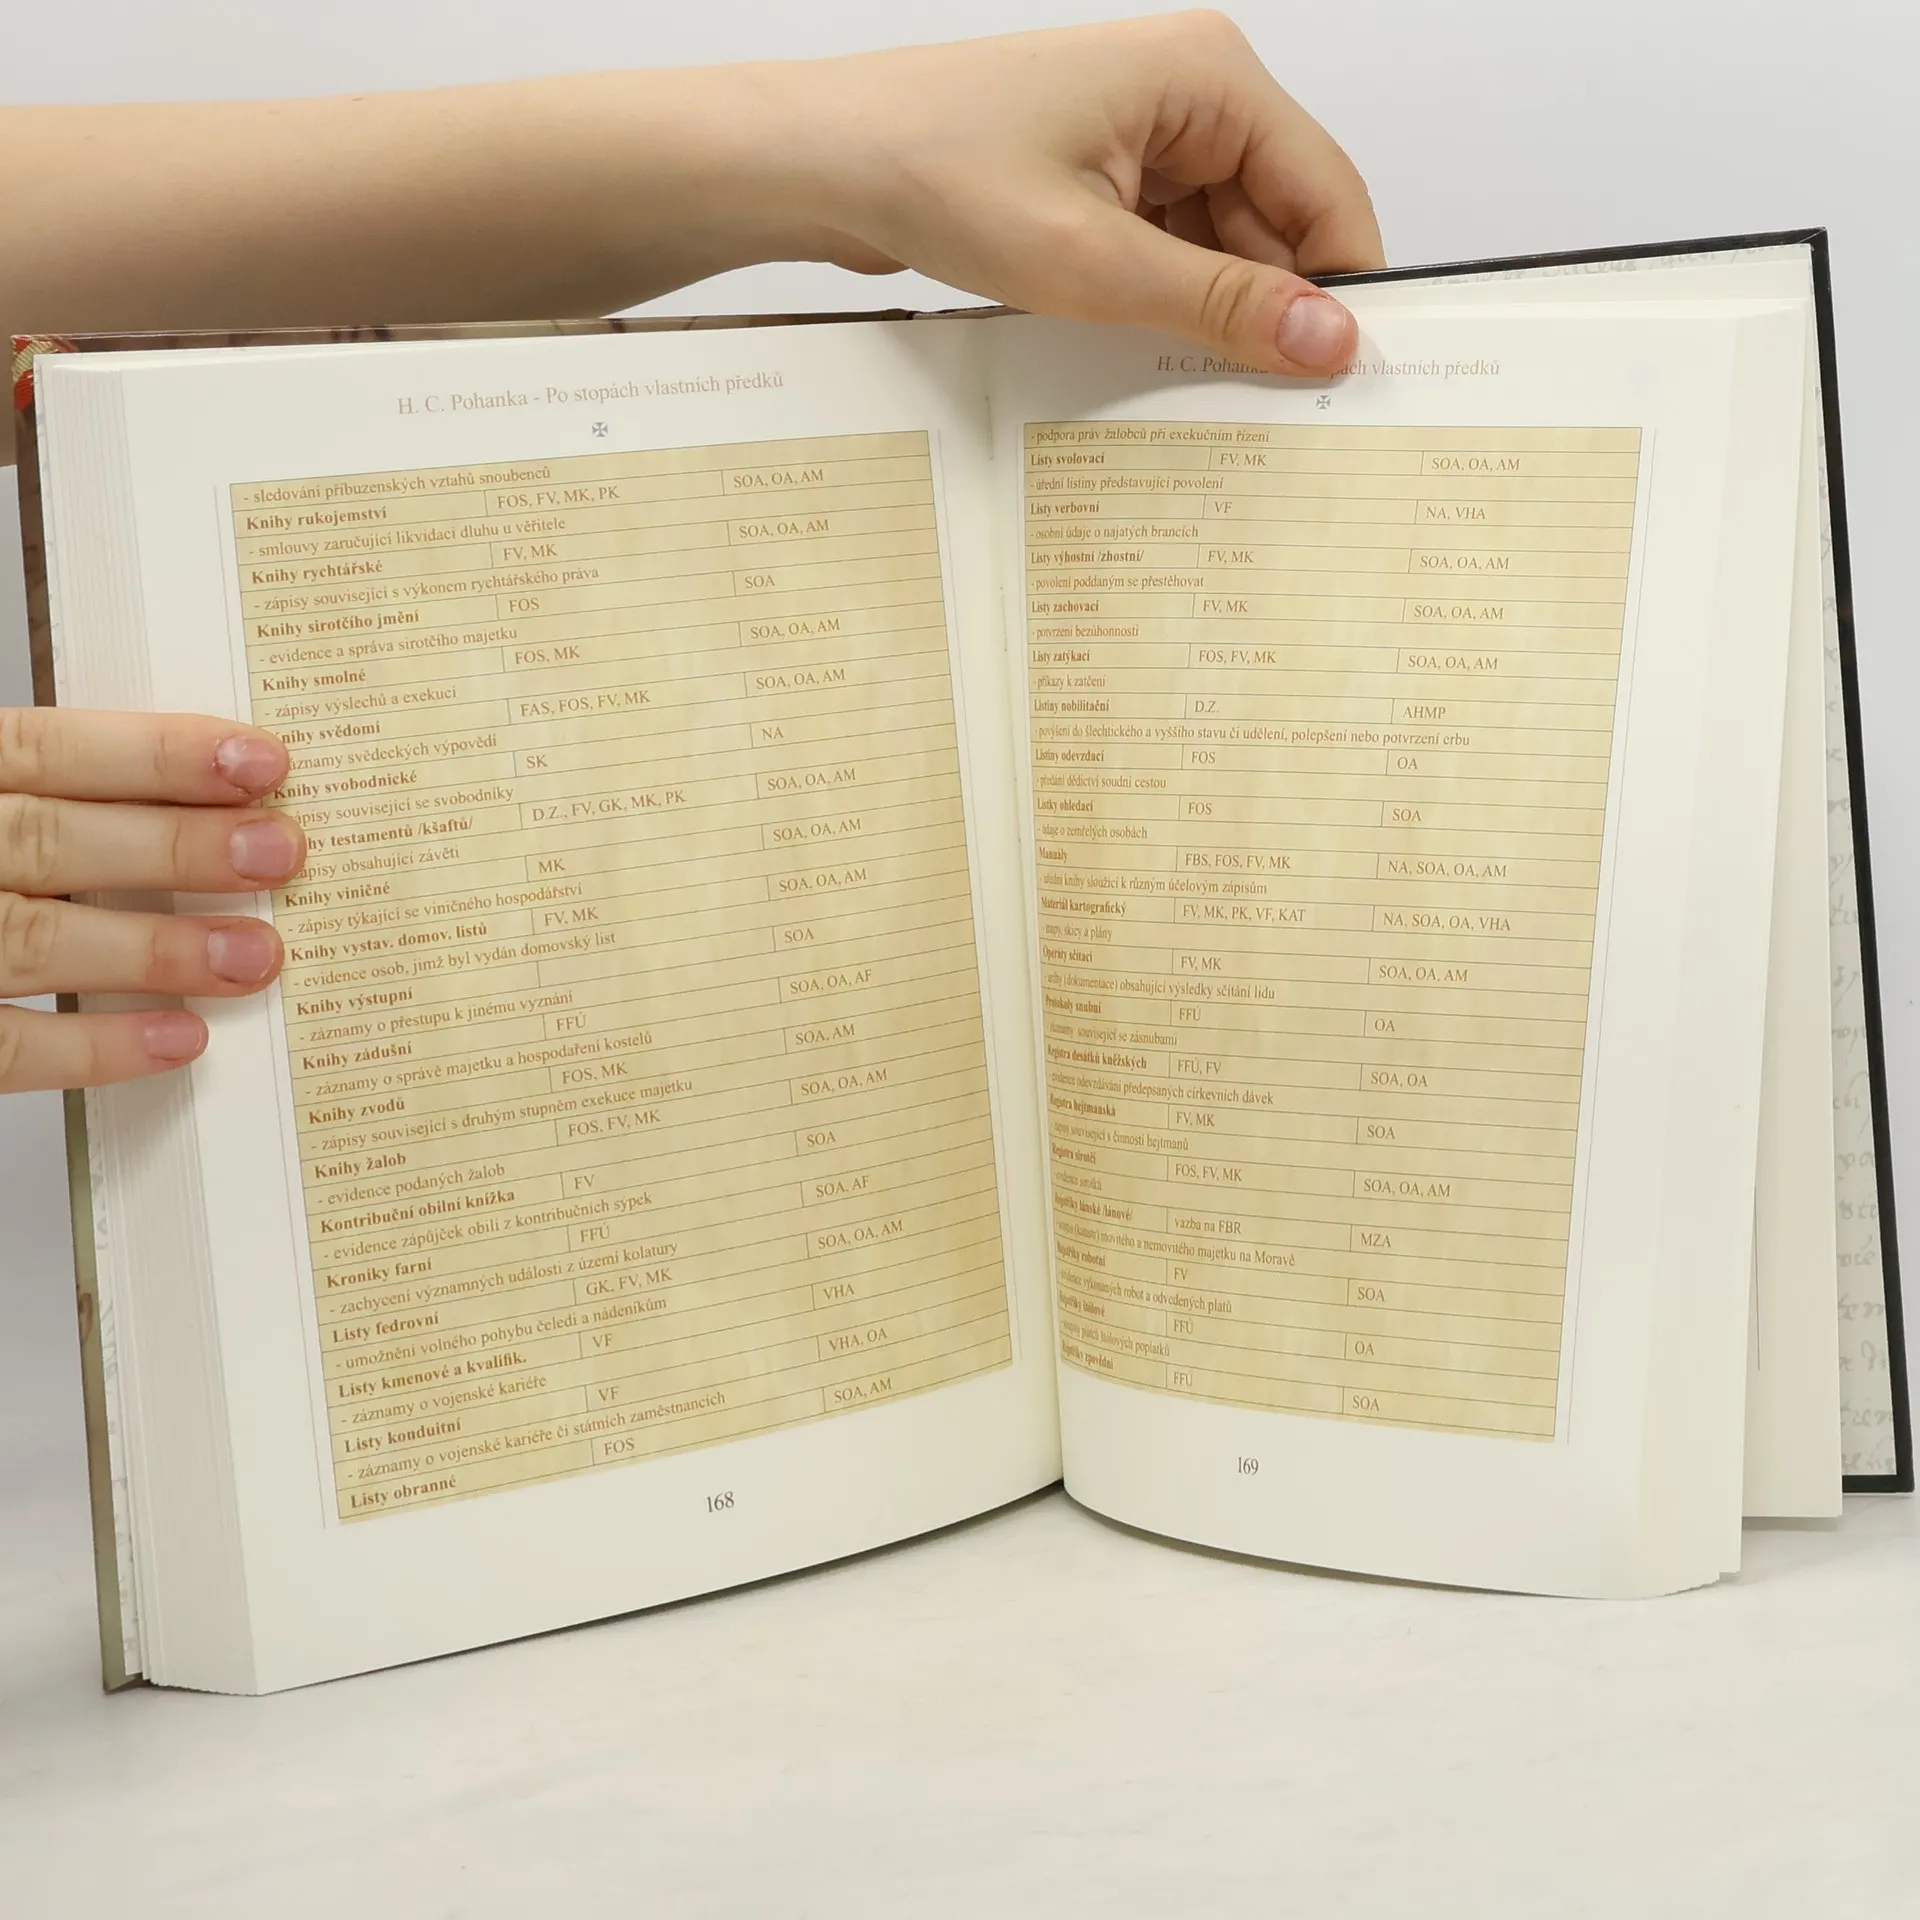 H. C. Pohanka - Po stopách vlastních předků
- sledování příbuzenských vztahů snoubenců
Knihy rukojemství FOS, FV, MK, PK SOA, OA, AM
- smlouvy zaručující likvidaci dluhu u věřitele
Knihy rychtářské FV, MK SOA, OA, AM
- zápisy související s výkonem rychtářského práva
Knihy sirotčího jmění FOS SOA
- evidence a správa sirotčího majetku
Knihy smolné FOS, MK SOA, OA, AM
- zápisy výslechů a exekucí
Knihy svědomí FAS, FOS, FV, MK SOA, OA, AM
záznamy svědeckých výpovědí
Knihy svobodnické SK NA
zápisy související se svobodníky
hy testamentů /kšaftů/ D.Z., FV, GK, MK, PK SOA, OA, AM
zápisy obsahující závěti
Knihy viničné MK SOA, OA, AM
- zápisy týkající se viničného hospodářství
Knihy vystav. domov. listů FV, MK SOA, OA, AM
- evidence osob, jimž byl vydán domovský list
Knihy výstupní SOA
- záznamy o přestupu k jinému vyznání
Knihy zádušní FFÚ SOA, OA, AF
- záznamy o správě majetku a hospodaření kostelů
Knihy zvodů FOS, MK SOA, AM
- zápisy související s druhým stupněm exekuce majetku
Knihy žalob FOS, FV, MK SOA, OA, AM
- evidence podaných žalob
Kontribuční obilní knížka FV SOA
- evidence zápůjček obilí z kontribučních sýpek
Kroniky farní FFÚ SOA, AF
- zachycení významných událostí z území kolatury
Listy fedrovní GK, FV, MK SOA, OA, AM
- umožnění volného pohybu čeledi a nádeníkům
Listy kmenové a kvalifik. VF VHA
- záznamy o vojenské kariéře
Listy konduitní VF VHA, OA
- záznamy o vojenské kariéře či státních zaměstnancích
Listy obranné FOS SOA, AM
168
H. C. Pohanka vlastních předků
- podpora práv žalobců při exekučním řízení
Listy svolovací FV, MK SOA, OA, AM
- úřední listiny představující povolení
Listy verbovní VF NA, VHA
- osobní údaje o najatých brancích
Listy výhostní /zhostní/ FV, MK SOA, OA, AM
- povolení poddaným se přestěhovat
Listy zachovací FV, MK SOA, OA, AM
- potvrzení bezúhonnosti
Listy zatýkací FOS, FV, MK SOA, OA, AM
- příkazy k zatčení
Listiny nobilitační D.Z. AHMP
- povýšení do šlechtického a vyššího stavu či udělení, polepšení nebo potvrzení erbu
Listiny odevzdací FOS OA
- předání dědictví soudní cestou
Lístky ohledací FOS SOA
- údaje o zemřelých osobách
Manuály FBS, FOS, FV, MK NA, SOA, OA, AM
- úřední knihy sloužící k různým účelovým zápisům
Materiál kartografický FV, MK, PK, VF, KAT NA, SOA, OA, VHA
- mapy, skicy a plány
Operáty sčítací FV, MK SOA, OA, AM
- archy (dokumentace) obsahující výsledky sčítání lidu
Protokoly snubní FFÚ OA
- záznamy související se zásnubami
Registra desátků kněžských FFÚ, FV SOA, OA
- evidence odevzdávání předepsaných církevních dávek
Registra hejtmanská FV, MK SOA
- zápisy související s činností hejtmanů
Registra sirotčí FOS, FV, MK SOA, OA, AM
- evidence sirotků
Rejstříky lánské /lánové/ vazba na FBR MZA
- soupis (katastr) movitého a nemovitého majetku na Moravě
Rejstříky robotní FV SOA
- evidence vykonaných robot a odvedených platů
Rejstříky štólové FFÚ OA
- soupisy plateb štólových poplatků
Rejstříky zpovědní FFÚ SOA
169